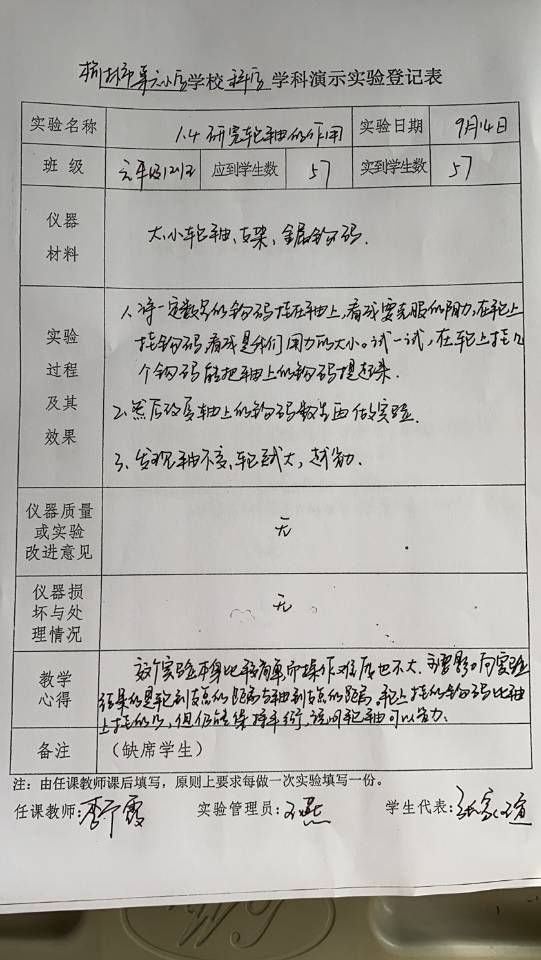 市第六小学校 科学 学科演示实验登记表
实验名称 1.4 研究轮轴的作用 实验日期 9月14日
班 级 六年级(2)班 应到学生数 57 实到学生数 57
仪器
材料
大小轮轴、支架、金属钩码.
实验
过程
及其
效果
1、将一定数量的钩码挂在轴上,看成要克服的阻力,在轮上
挂钩码,看成是我们用力的大小。试一试,在轮上挂几
个钩码能把轴上的钩码提起来.
2、然后改变轴上的钩码数量再做实验.
3、发现轴不变,轮越大,越省力.
仪器质量
或实验
改进意见
无
仪器损
坏与处
理情况
无
教学
心得
这个实验本身比较简单而操作难度也不大.主要影响实验
结果的是轮到支点的距离与轴到支点的距离.轮上挂的钩码比轴
上挂的少,但仍能保持平衡,说明轮轴可以省力.
备注 (缺席学生)
注:由任课教师课后填写,原则上要求每做一次实验填写一份。
任课教师: 实验管理员: 学生代表: